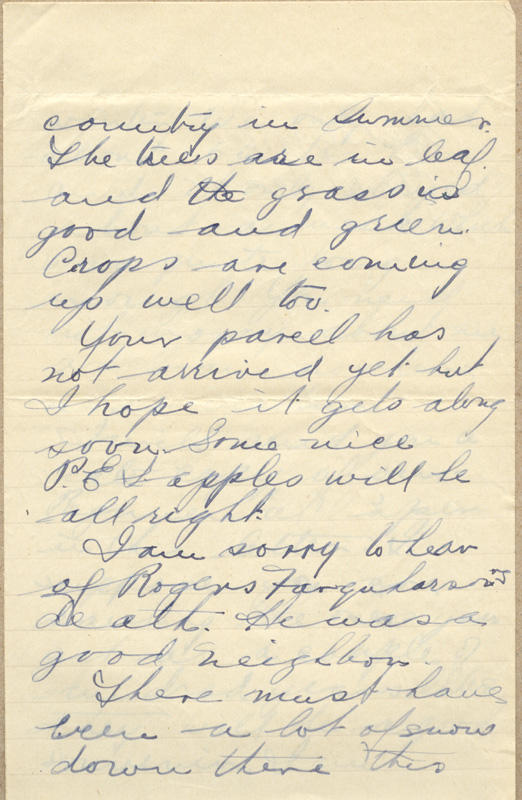 country in Summer.
The trees are in leaf
and the grass is
good and green.
Crops are coming
up well too.
Your parcel has
not arrived yet but
I hope it gets along
soon. Some nice
P.E.I. apples will be
all right.
I am sorry to hear
of Rogers Farquharson's
death. He was a
good neighbor.
There must have
been a lot of snow
down there this